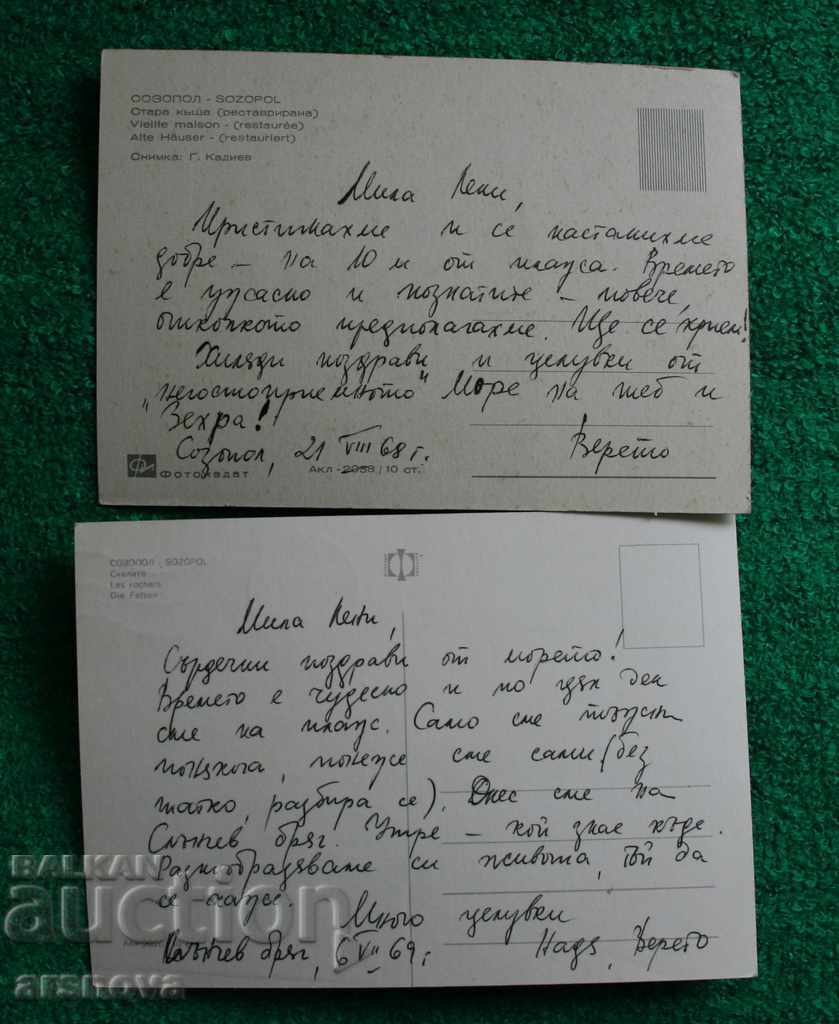 СОЗОПОЛ - SOZOPOL
Стара къща (реставрирана)
Vieille maison - (restaurée)
Alte Häuser - (restauriert)
Снимка: Г. Кадиев
Мила Пени,
Пристигнахме и се настанихме
добре – на 10 м от плажа. Времето
е ужасно и познатите – повече,
отколкото предполагахме. Ще се крием!
Хиляди поздрави и целувки от
"негостоприемното" Море на теб и
Зехра!
Созопол, 21 VIII 68 г.
Верето
Фотоиздат
Акл - 2038 / 10 ст.
СОЗОПОЛ - SOZOPOL
Скалите
Les rochers
Die Felsen
Мила Пени,
Сърдечни поздрави от морето!
Времето е чудесно и по цял ден
сме на плаж. Само сме тъжни
понякога, понеже сме сами (без
татко, разбира се). Днес сме на
Слънчев бряг. Утре – кой знае къде.
Разнообразяваме си живота, тъй да
се каже.
Много целувки
Слънчев бряг, 6 VII 69 г.
Надя, Верето
BALKAN
auction
arsnova